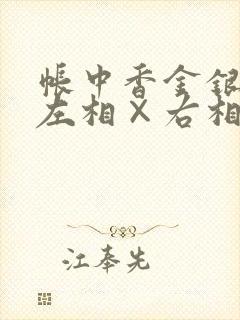 帳中香金銀
左相X右相
江奉先